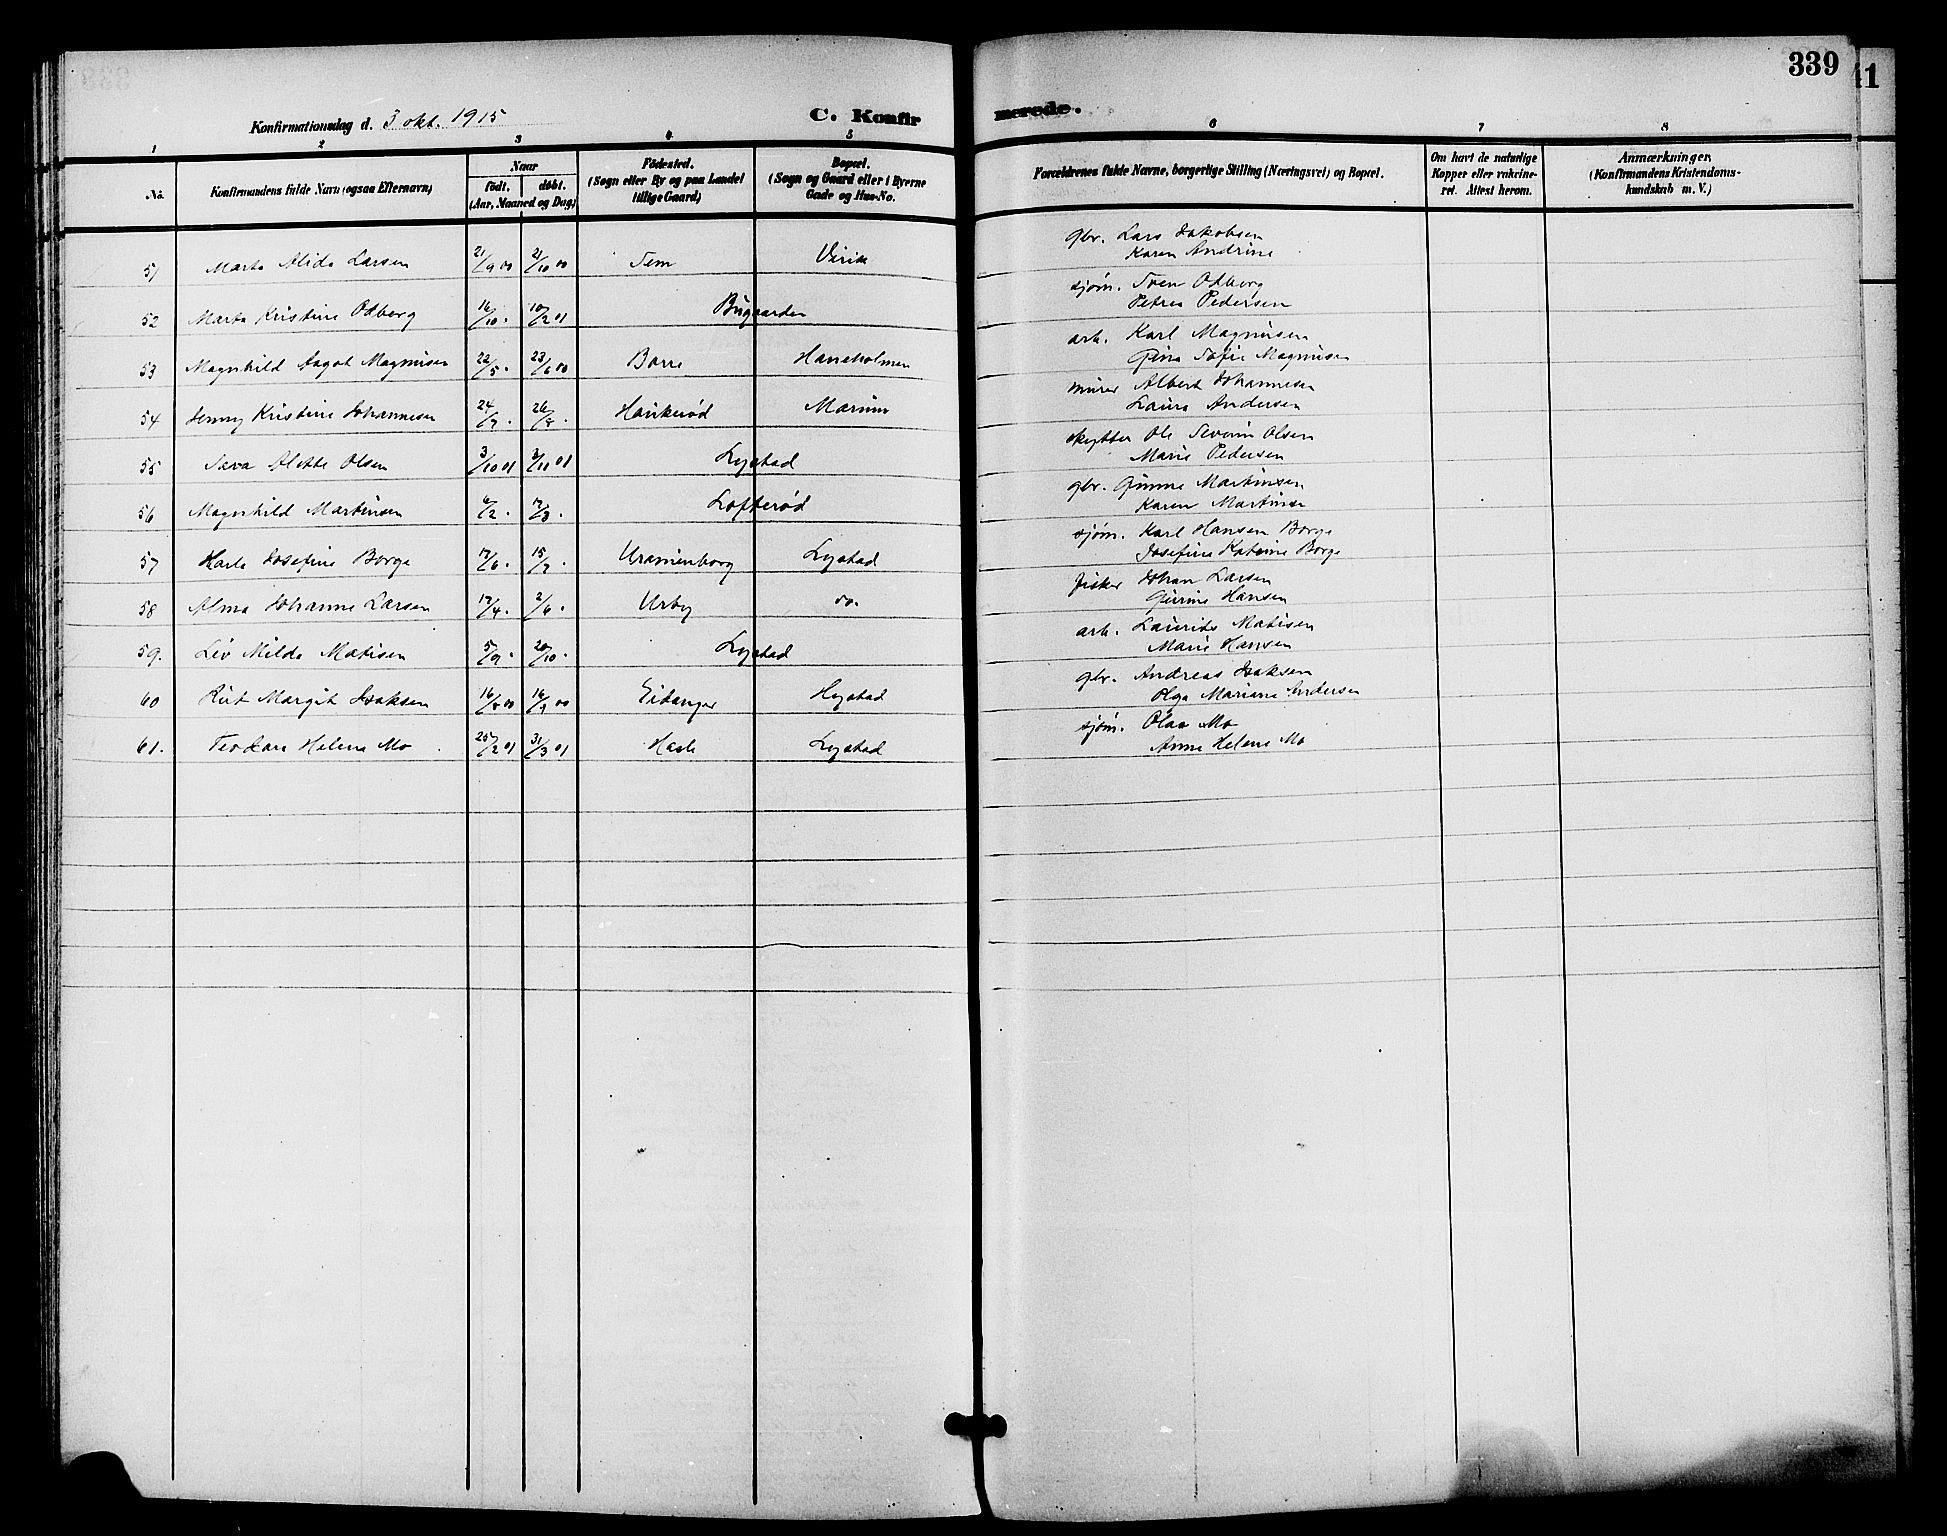 339
41
Konfirmationsdag d. 3 okt. 1915
C. Konfir
merede.
1 2 3 4 5 6 7 8
No.
Konfirmandens fulde Navn (ogsaa Efternavn)
Naar
födt. döbt.
(Aar, Maaned og Dag)
Födested.
(Sogn eller By og paa Landet
tillige Gaard)
Bopæl.
(Sogn og Gaard eller i Byerne
Gade og Hus-No.
Forældrenes fulde Navne, borgerlige Stilling (Næringsvei) og Bopæl.
Om havt de naturlige
Kopper eller vakcine-
ret. Attest herom.
Anmærkninger.
(Konfirmandens Kristendoms-
kundskab m. V.)
51 Marta Alida Larsen 21/9 00 21/10 00 Sem Virik gbr. Lars Jakobsen
Karen Andrine
52 Marta Kristine Odberg 16/10. 10/2 01 Bugaarden sjøm. Sven Odberg
Petrea Pedersen
53 Magnhild Aagot Magnusen 22/5. 23/6 00 Borre Haneholmen arb. Karl Magnusen
Gina Sofie Magnusen
54 Jenny Kristine Johannesen 24/7. 26/8. Haukerød Marum murer Albert Johannesen
Laura Andersen
55 Alette Olsen 3/10 01 3/11 01 Lystad skytter Ole Severin Olsen
Marie Pedersen
56 Magnhild Martinsen 6/2. 17/3. Lofterød gbr. Martinsen
Karen Martinsen
57 Karla Josefine Borge 17/6. 15/7. Uranienborg Lystad sjøm. Karl Hansen Borge
Josefine Katrine Borge
58 Alma Johanne Larsen 17/4. 2/6. Urby do. fisker Johan Larsen
Gurine Hansen
59. Liv Milda Matisen 5/9. 20/10. Lystad arb. Laurits Matisen
Marie Hansen
60 Rut Margit Isaksen 16/8 00 16/9 00 Eidanger Hystad gbr. Andreas Isaksen
Olga Mariane Andersen
61. Teodora Helene Mo 25/2 01 31/3 01 Hasle Lystad sjøm. Olav Mo
Anna Helene Mo